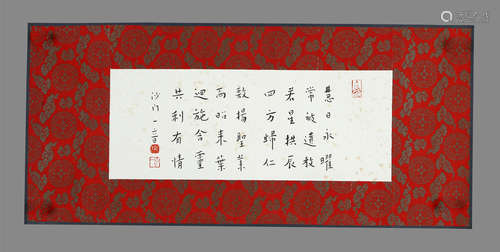 慧日永曜
常被遺教
若星拱辰
四方歸仁
敷揚聖業
高昭来葉
迴施含靈
共利有情
沙門一音